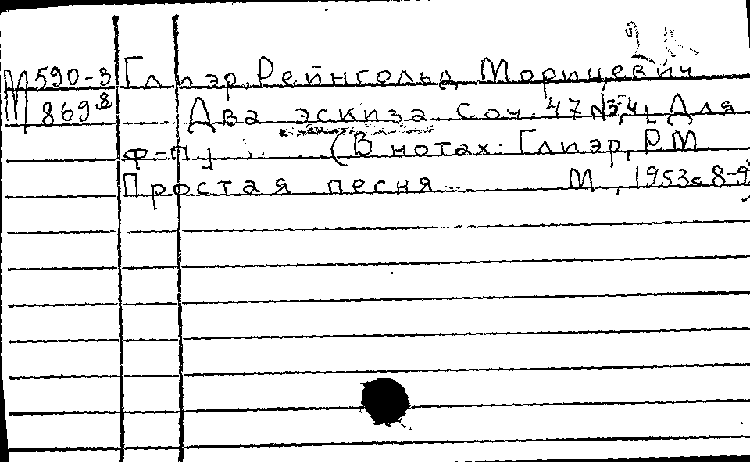 М590-3 Глиэр, Рейнгольд Морицевич
М 869⁸ Два эскиза. Соч. 47 №3,4. Для
ф-п. (В нотах: Глиэр, РМ
Простая песня М., 1953 с 8-9